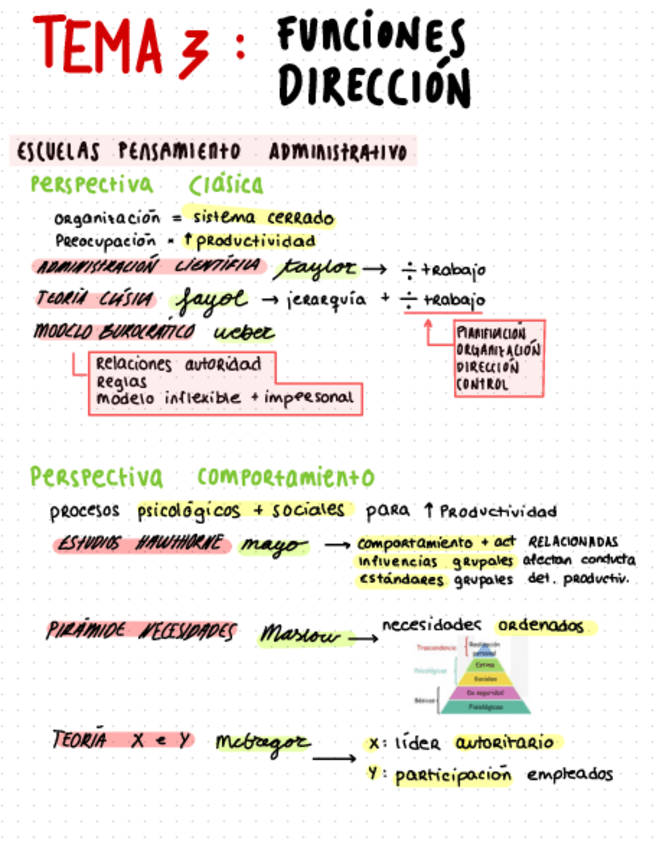 TEMA 3: FUNCIONES
DIRECCIÓN
ESCUELAS PENSAMIENTO ADMINISTRATIVO
Perspectiva Clásica
Organización = sistema cerrado
Preocupación = ↑ productividad
ADMINISTRACIÓN CIENTÍFICA taylor → ÷ trabajo
TEORÍA CLÁSICA fayol → jerarquía + ÷ trabajo
MODELO BUROCRÁTICO weber
Relaciones autoridad
Reglas
modelo inflexible + impersonal
PLANIFICACIÓN
ORGANIZACIÓN
DIRECCIÓN
CONTROL
Perspectiva Comportamiento
procesos psicológicos + sociales para ↑ Productividad
ESTUDIOS HAWTHORNE mayo → comportamiento + act RELACIONADAS
influencias grupales afectan conducta
estándares grupales det. productiv.
PIRÁMIDE NECESIDADES Maslow → necesidades ordenados
Trascendencia
Realización
personal
Psicológicas
Estima
Sociales
Básicas
De seguridad
Fisiológicas
TEORÍA X e Y McGregor → X: líder autoritario
Y: participación empleados